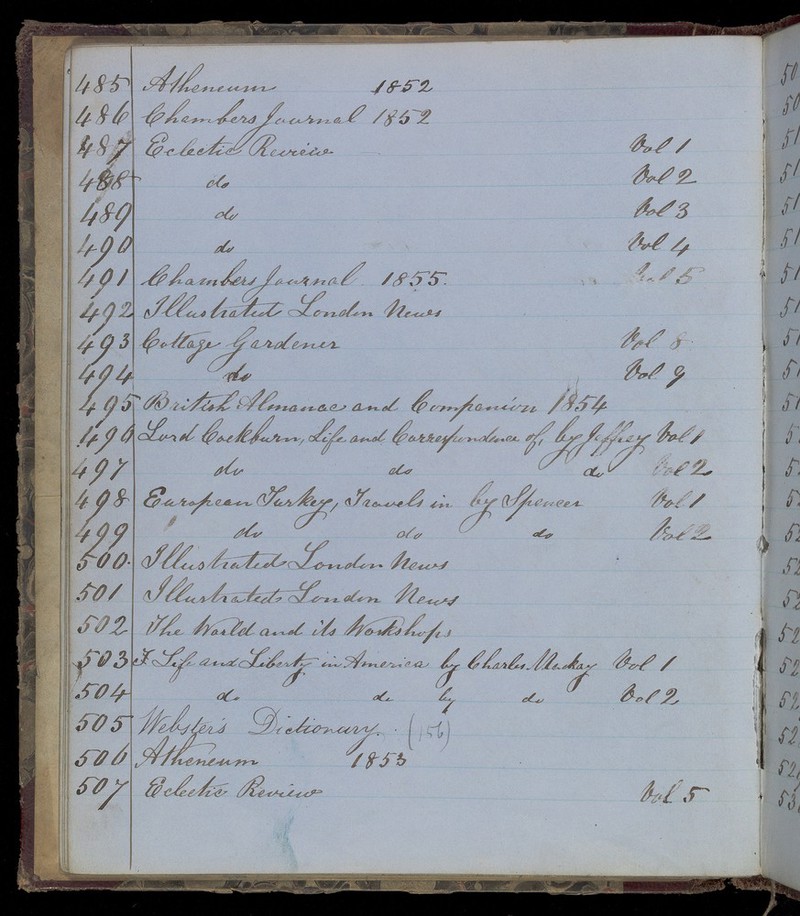 485 Atheneum 1852
486 Chambers Journal 1852
487 Eclectic Review Vol 1
488 do Vol 2
489 do Vol 3
490 do Vol 4
491 Chambers Journal 1855. Vol 5
492 Illustrated London News
493 Cottage Gardener Vol 8
494 do Vol 9
495 British Almanac and Companion 1854
496 Lord Cockburn, Life and Correspondence of, by Jeffrey Vol 1
497 do do do Vol 2
498 European Turkey, Travels in by Spencer Vol 1
499 do do do Vol 2
500. Illustrated London News
501 Illustrated London News
502 The World and its Workshops
503 F Life and Liberty in America by Charles Mackay Vol 1
504 do do by do Vol 2
505 Webster's Dictionary. (156)
506 Atheneum 1853
507 Eclectic Review Vol 5